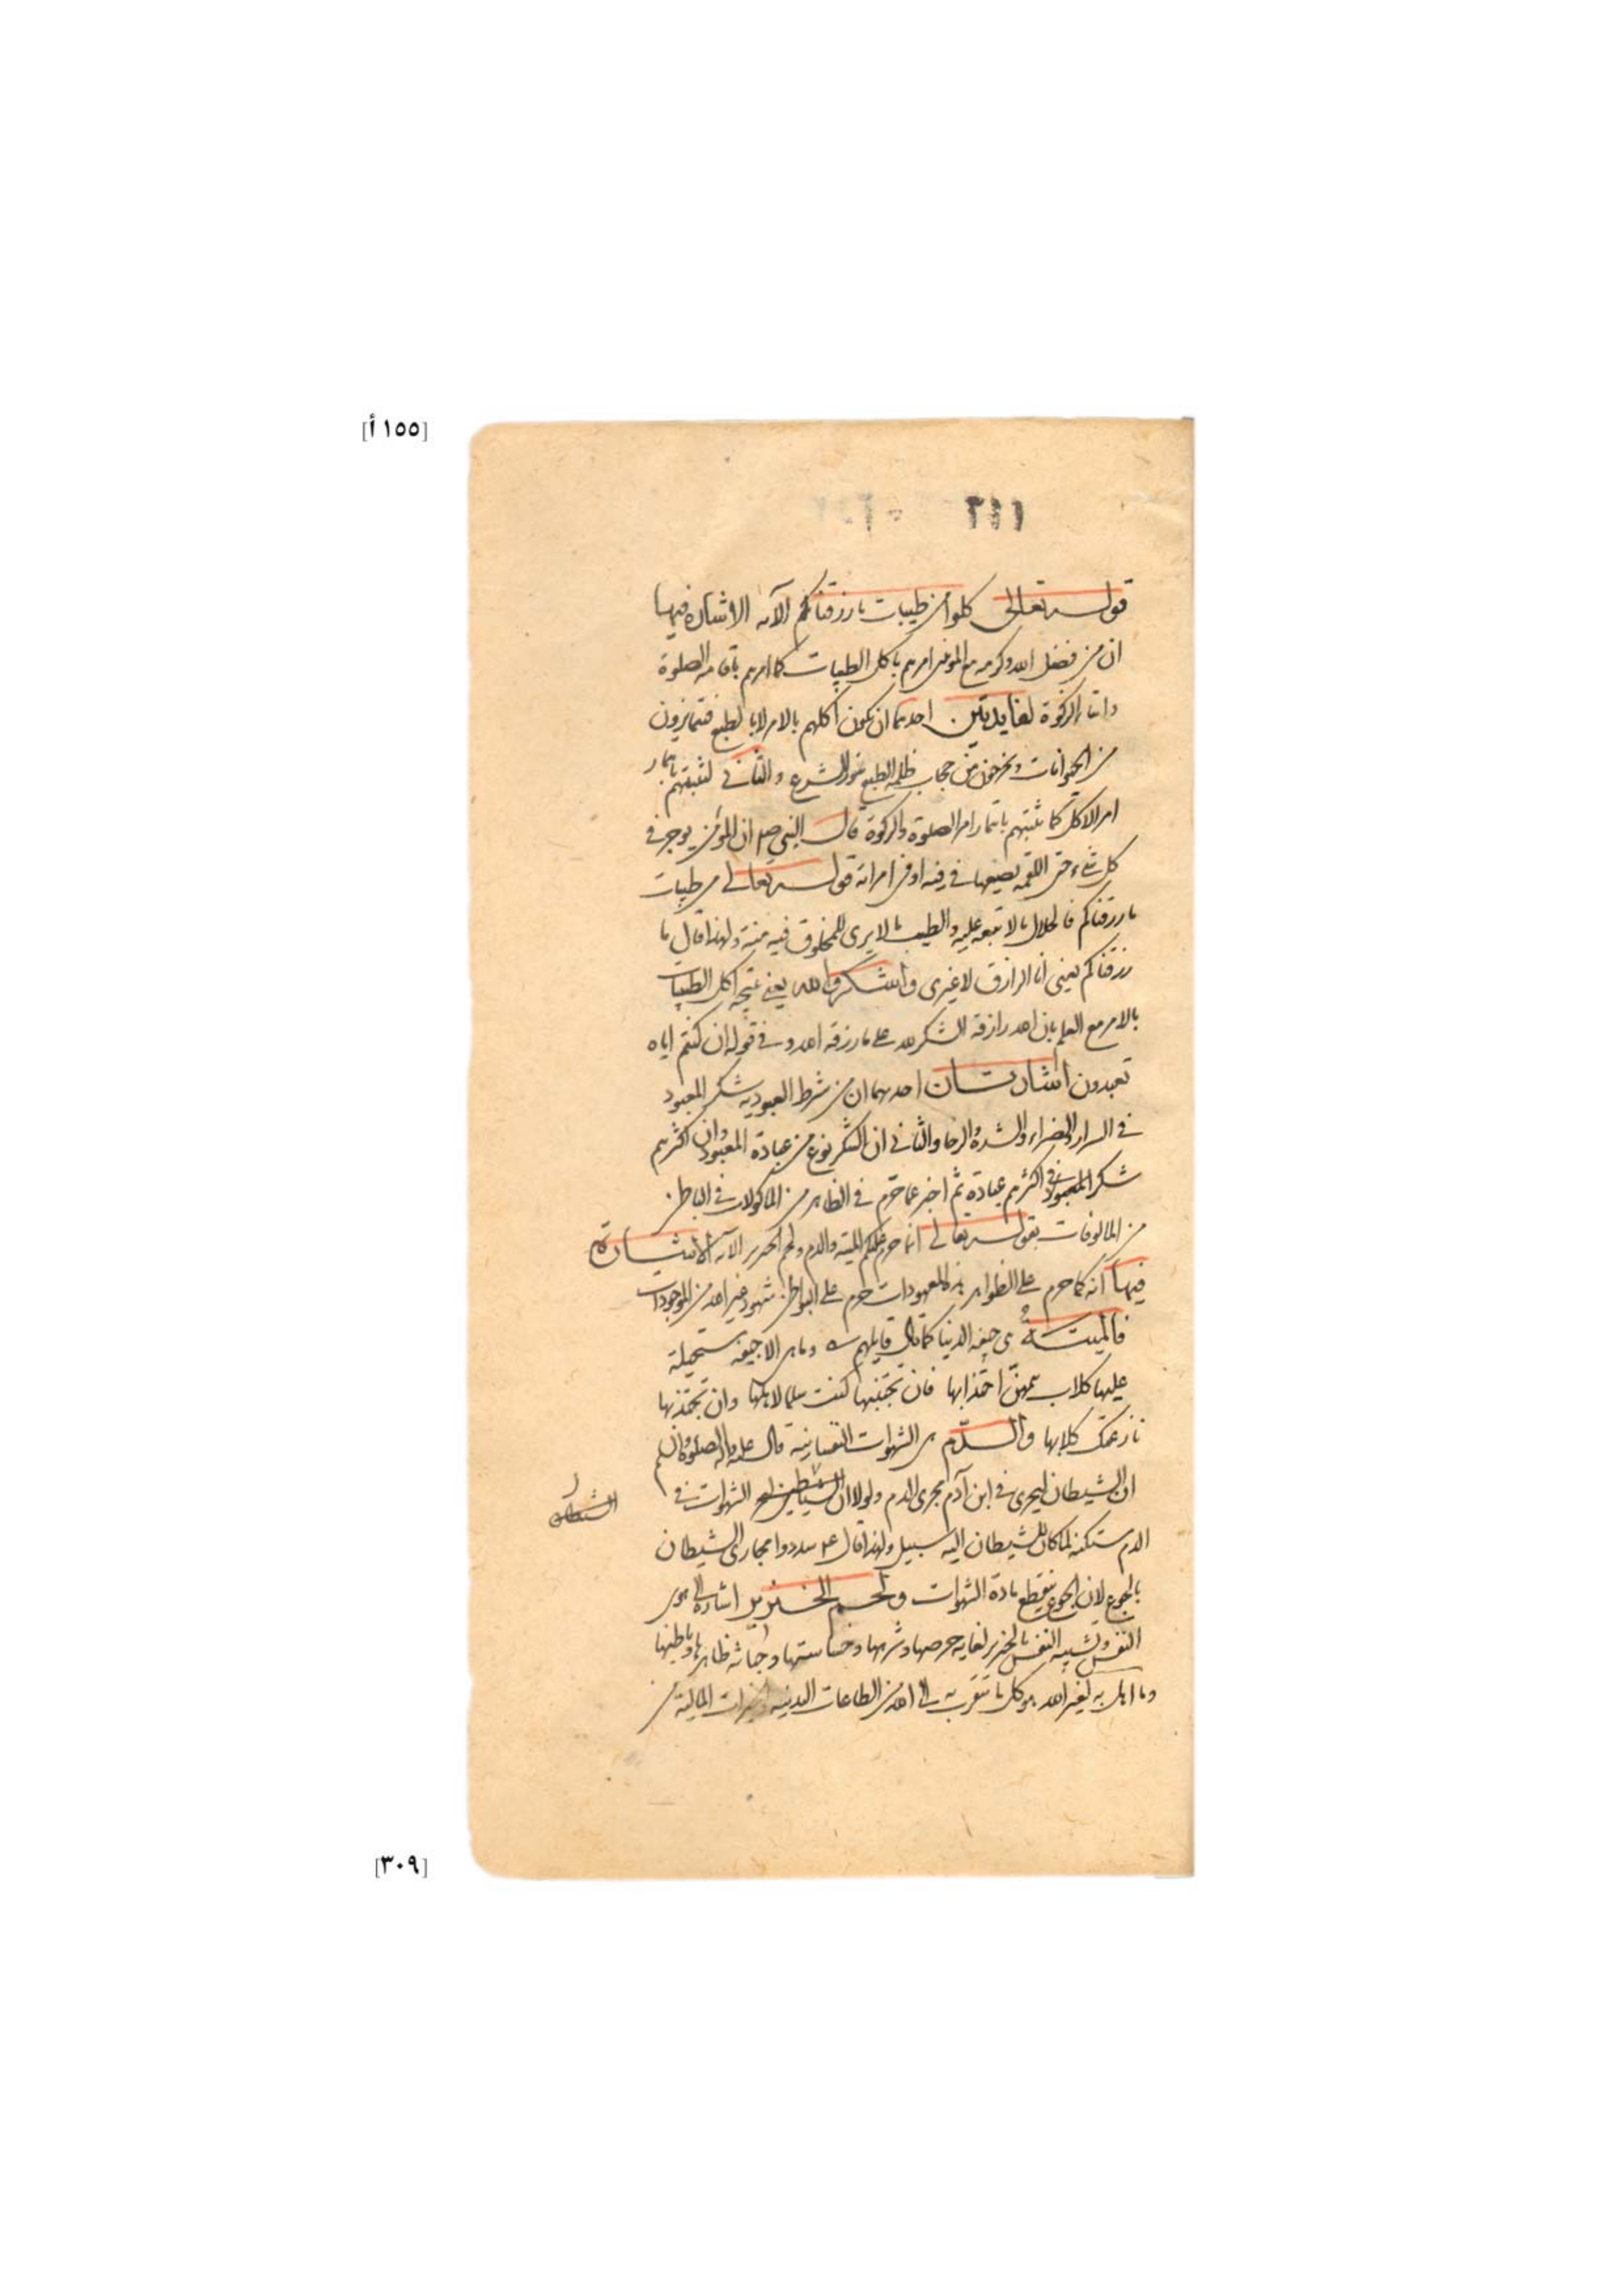 [١٥٥ أ]
٢٤١
قوله تعالى كلوا من طيبات ما رزقناكم الآية الاشارة فيها
ان من فضل الله وكرمه مع المؤمن امرهم باكل الطيبات كما امرهم باقامة الصلوة
وايتاء الزكوة لفايدتين احديهما ان يكون اكلهم بالامر لا بالطبع فيتمايزون
من الحيوانات ويخرجون من حجاب ظلمة الطبع بنور الشرع والثاني لثبتهم بايتمار
امر الاكل كما يثبتهم بايتمار امر الصلوة والزكوة قال النبي صم ان المؤمن يوجر في
كل شيء حتى اللقمة يضعها في فيه او في امراته قوله تعالى من طيبات
ما رزقناكم فالحلال ما لا تبعة عليه والطيب ما لا يرى للمخلوق فيه منة ولهذا قال ما
رزقناكم يعني انا الرازق لا غيري واشكروا لله يعني نتيجة اكل الطيبات
بالامر مع العلم بان الله رازقه الشكر لله على ما رزقه الله وفي قوله ان كنتم اياه
تعبدون اشارتان احديهما ان من شرط العبودية شكر المعبود
في السراء والضراء والشدة والرخا والثاني ان الشكر نوع من عبادة المعبود وان اكثرهم
شكر المعبود في اكثرهم عبادة ثم اخبر عما حرم في الظاهر من الماكولات في الباطن
من المالوفات بقوله تعالى انما حرم عليكم الميتة والدم ولحم الخنزير الآية الاشارة
فيها انه كما حرم على الظواهر هذه المعهودات حرم على البواطن شهود غير الله من الموجودات
فالميتة هي جيفة الدنيا كما قال قايلهم وما هي الا جيفة مستحيلة
عليها كلاب همهن اجتذابها فان تجتنبها كنت سلما لاهلها وان تجتذبها
نازعتك كلابها والدم هي الشهوات النفسانية قال عليه الصلوة والسلم
ان الشيطان ليجري في ابن آدم مجرى الدم ولولا ان الشهوات في
الشيطان
الدم مستكنة لما كان للشيطان اليه سبيل ولهذا قال ع م سددوا مجاري الشيطان
بالجوع لان الجوع يقطع مادة الشهوات ولحم الخنزير اشارة الى هوى
النفس وتشبيه النفس بالخنزير لغاية حرصها وشرهها وخساستها وخباثة ظاهرها وباطنها
وما اهل به لغير الله هو كل ما يتقرب به الى الله من الطاعات البدنية والخيرات المالية من
[٣٠٩]